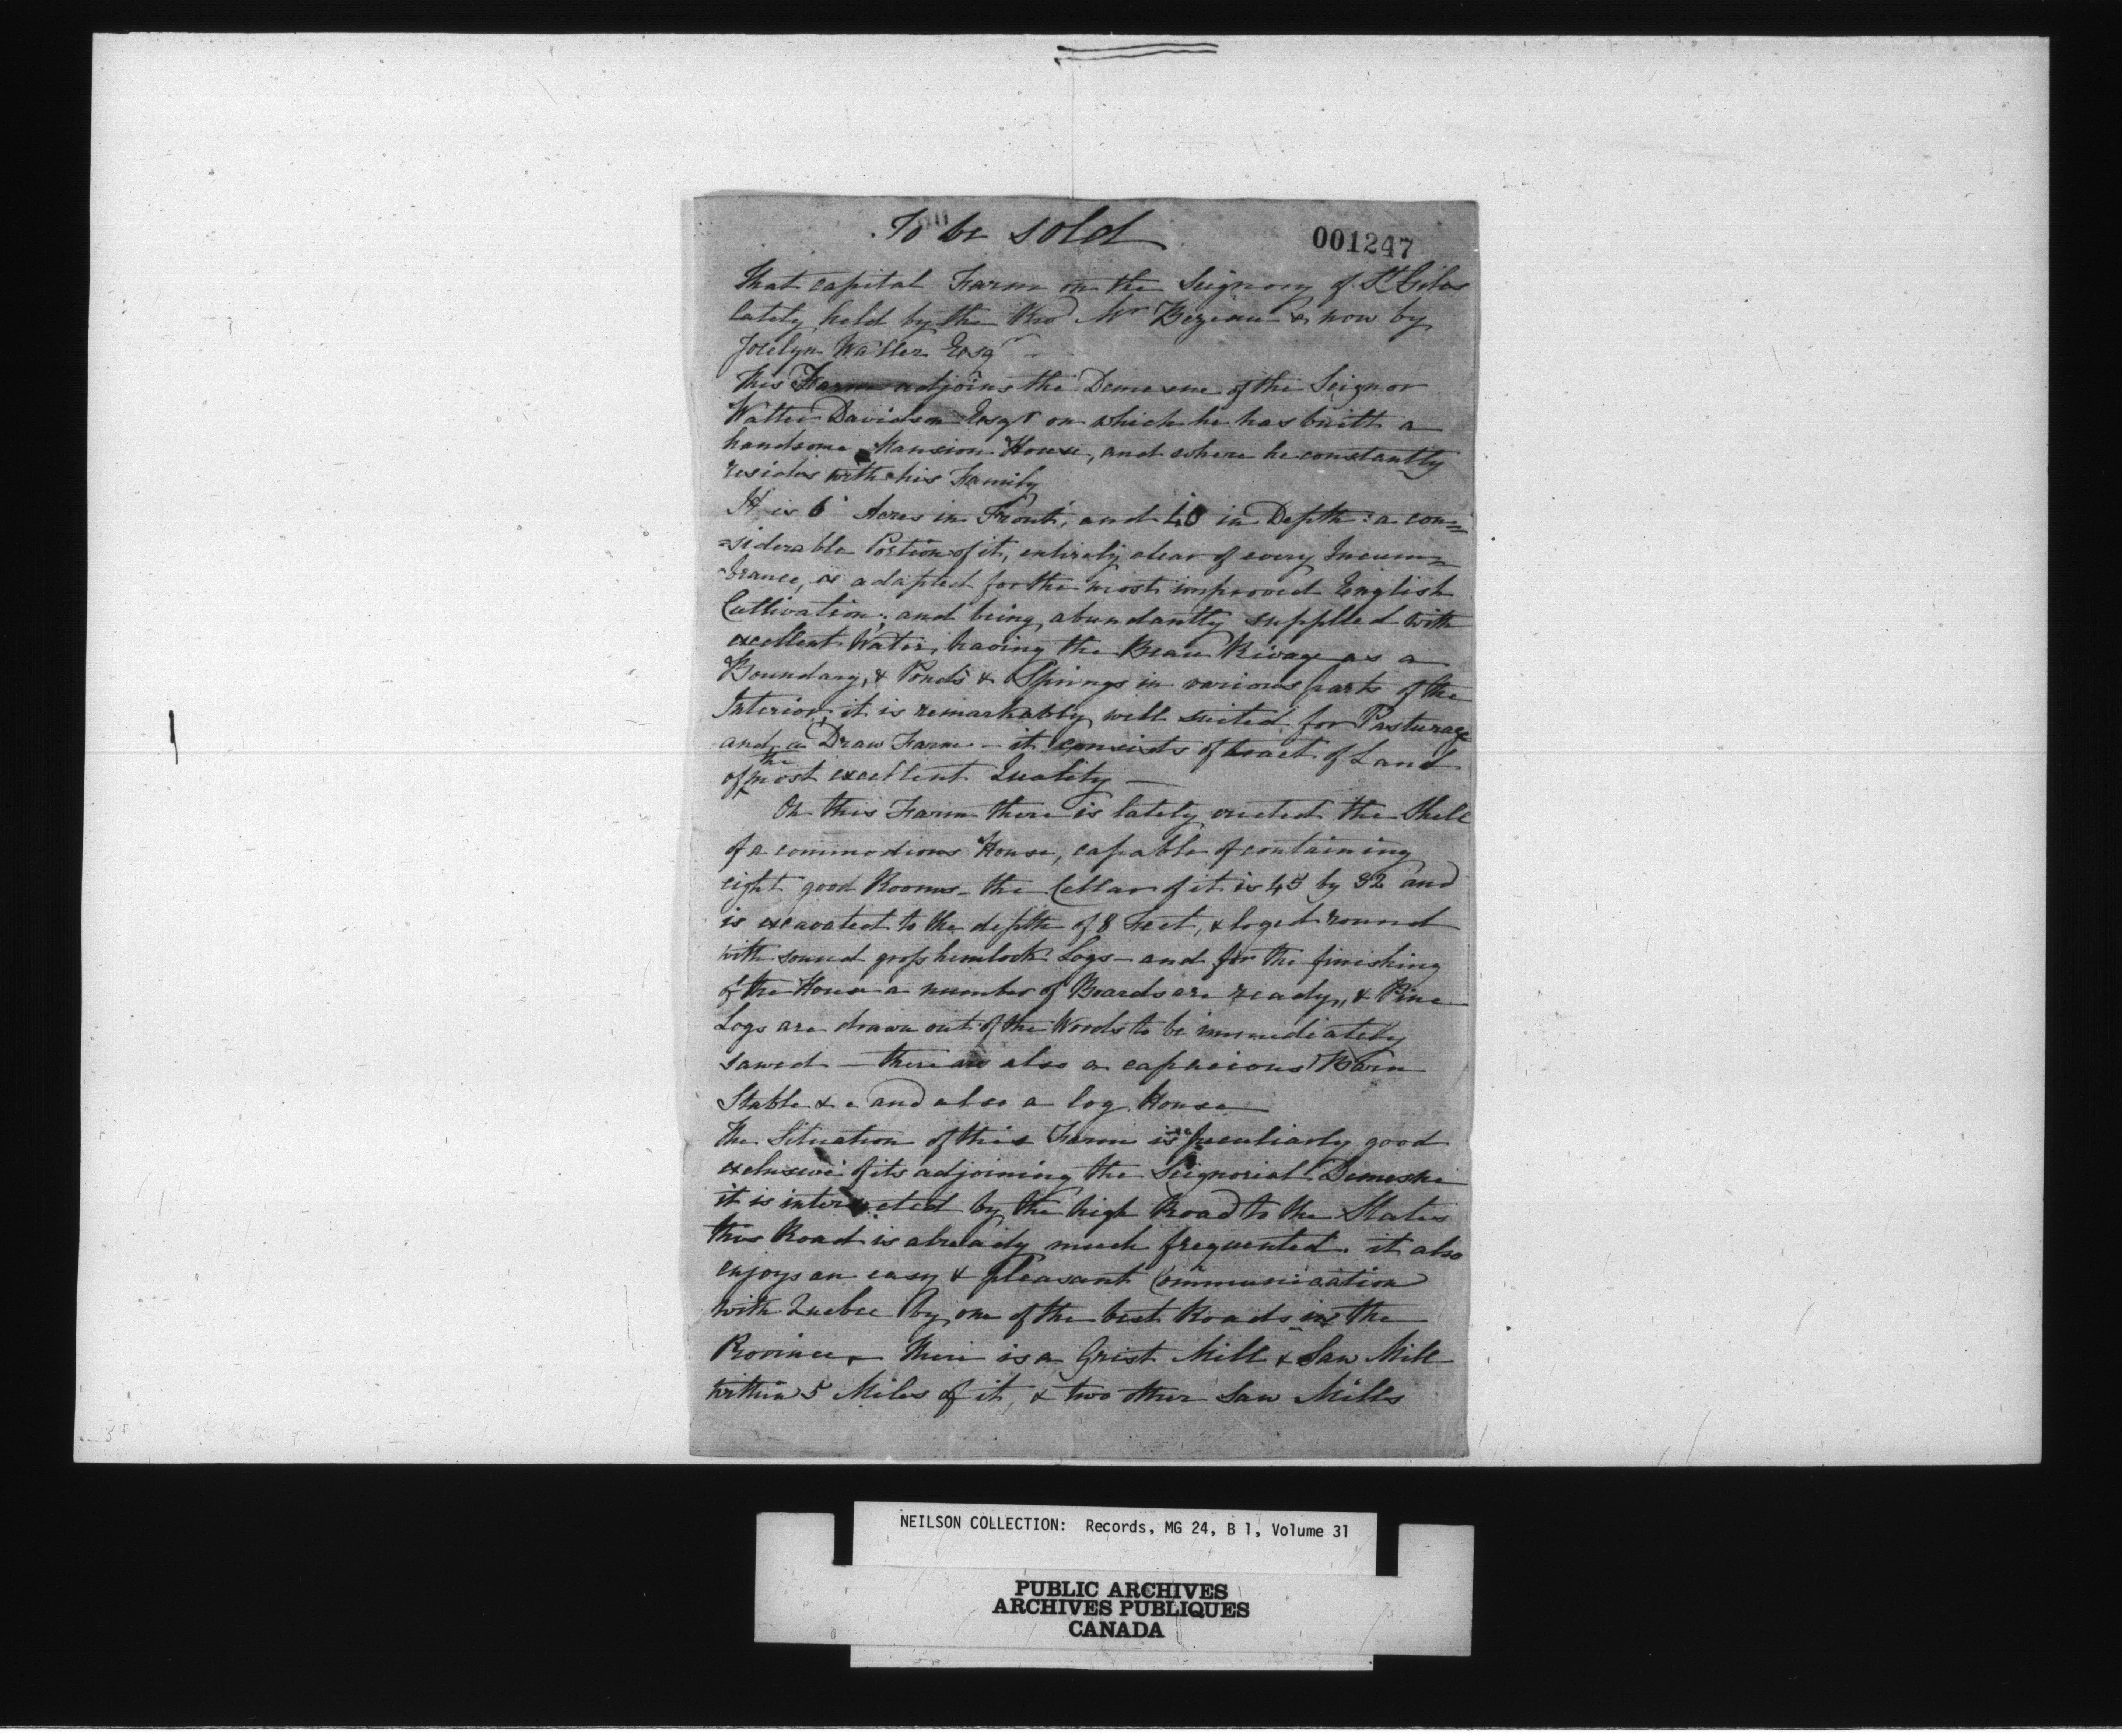 To be sold
001247
That capital Farm on the Seignory of St Giles
lately held by the Rvd Mr Bezeau & now by
Jocelyn Waller Esqr
This Farm adjoins the Demesne of the Seignor
Walter Davidson Esqr on which he has built a
handsome Mansion House, and where he constantly
resides with his Family
It is 6 Acres in Front, and 40 in Depth: a con=
=siderable Portion of it, entirely clear of every Incum=
=brance, is adapted for the most improved English
Cultivation; and being abundantly supplied with
excellent Water, having the Beau Rivage as a
Boundary, & Ponds & Springs in various parts of the
Interior, it is remarkably well suited for Pasturage
and a Draw Farm - it consists of tract of Land
of the most excellent Quality —
On this Farm there is lately erected the Shell
of a commodious House, capable of containing
eight good Rooms - the Cellar of it is 45 by 32 and
is excavated to the depth of 8 Feet, & loged round
with sound gross hemlock Logs - and for the finishing
of the House a number of Boards are ready, & Pine
Logs are drawn out of the Woods to be immediately
sawed — there are also a capacious Barn
Stable &c and also a log House
The Situation of this Farm is peculiarly good
exclusive of its adjoining the Seignorial Demesne
it is intersected by the high Road to the States
this Road is already much frequented. it also
enjoys an easy & pleasant Communication
with Quebec by one of the best Roads in the
Province - There is a Grist Mill & Saw Mill
within 5 Miles of it, & two other Saw Mills
NEILSON COLLECTION: Records, MG 24, B 1, Volume 31
PUBLIC ARCHIVES
ARCHIVES PUBLIQUES
CANADA